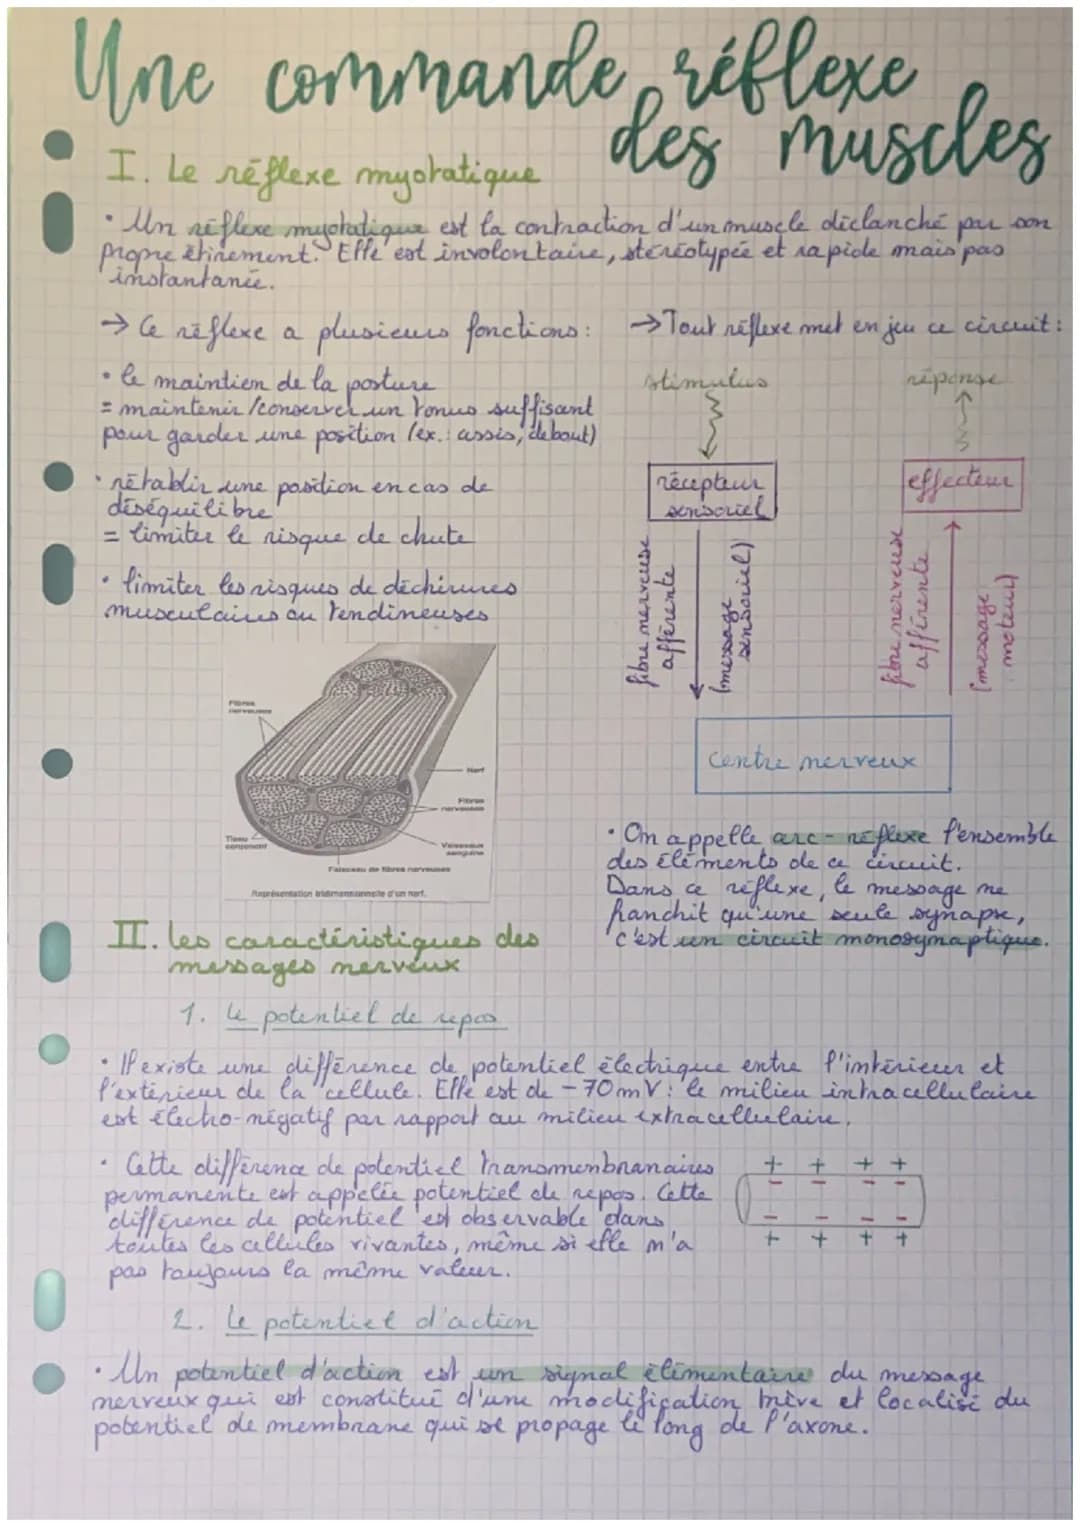 Une commande réflexe
des muscles
I. Le réflexe myotatique
• Un réflexe myotatique est la contraction d'un muscle déclanché par son
propre étirement. Elle est involontaire, stéréotypée et rapide mais pas
instantanée.
→ Ce réflexe a plusieurs fonctions :
• le maintien de la posture
= maintenir/conserver un tonus suffisant
pour garder une position (ex.: assis, debout)
• rétablir une position en cas de
déséquilibre
= limiter le risque de chute
• limiter les risques de déchirures
musculaires ou tendineuses
→ Tout réflexe met en jeu ce circuit :
stimulus
réponse
récepteur
sensoriel
effecteur
fibre nerveuse
afférente
(message
sensoriel)
fibre nerveuse
afférente
(message
moteur)
centre nerveux
Fibres
nerveuses
Nerf
Fibres
nerveuses
Tissu
conjonctif
Vaisseaux
sanguins
Faisceau de fibres nerveuses
Représentation tridimensionnelle d'un nerf.
• On appelle arc-réflexe l'ensemble
des éléments de ce circuit.
Dans ce réflexe, le message ne
franchit qu'une seule synapse,
c'est un circuit monosynaptique.
II. les caractéristiques des
messages nerveux
1. Le potentiel de repos
• Il existe une différence de potentiel électrique entre l'intérieur et
l'extérieur de la cellule. Elle est de -70mV : le milieu intracellulaire
est électro-négatif par rapport au milieu extracellulaire.
• Cette différence de potentiel transmembranaires
permanente est appelée potentiel de repos. Cette
différence de potentiel est observable dans
toutes les cellules vivantes, même si elle n'a
pas toujours la même valeur.
+ + + +
- - - -
- - - -
+ + + +
2. Le potentiel d'action
• Un potentiel d'action est un signal élémentaire du message
nerveux qui est constitué d'une modification brève et localisé du
potentiel de membrane qui se propage le long de l'axone.